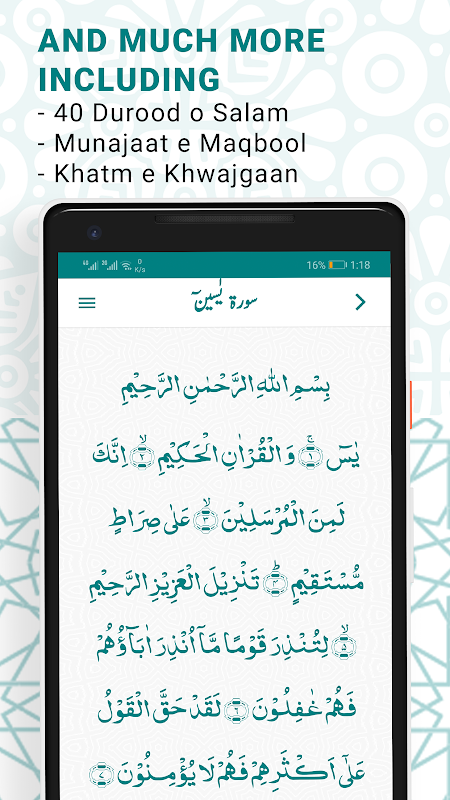 AND MUCH MORE
INCLUDING
- 40 Durood o Salam
- Munajaat e Maqbool
- Khatm e Khwajgaan
4G 3G 0 K/s 16% 1:18
سورة يٰسين
بِسْمِ اللهِ الرَّحْمٰنِ الرَّحِيْمِ
يٰسٓ ۚ ﴿۱﴾ وَ الْقُرْاٰنِ الْحَكِيْمِ ۙ ﴿۲﴾ اِنَّكَ
لَمِنَ الْمُرْسَلِيْنَ ۙ ﴿۳﴾ عَلٰى صِرَاطٍ
مُّسْتَقِيْمٍ ؕ ﴿۴﴾ تَنْزِيْلَ الْعَزِيْزِ الرَّحِيْمِ
ۙ ﴿۵﴾ لِتُنْذِرَ قَوْمًا مَّاۤ اُنْذِرَ اٰبَآؤُهُمْ
فَهُمْ غٰفِلُوْنَ ﴿۶﴾ لَقَدْ حَقَّ الْقَوْلُ
عَلٰۤى اَكْثَرِهِمْ فَهُمْ لَا يُؤْمِنُوْنَ ﴿۷﴾